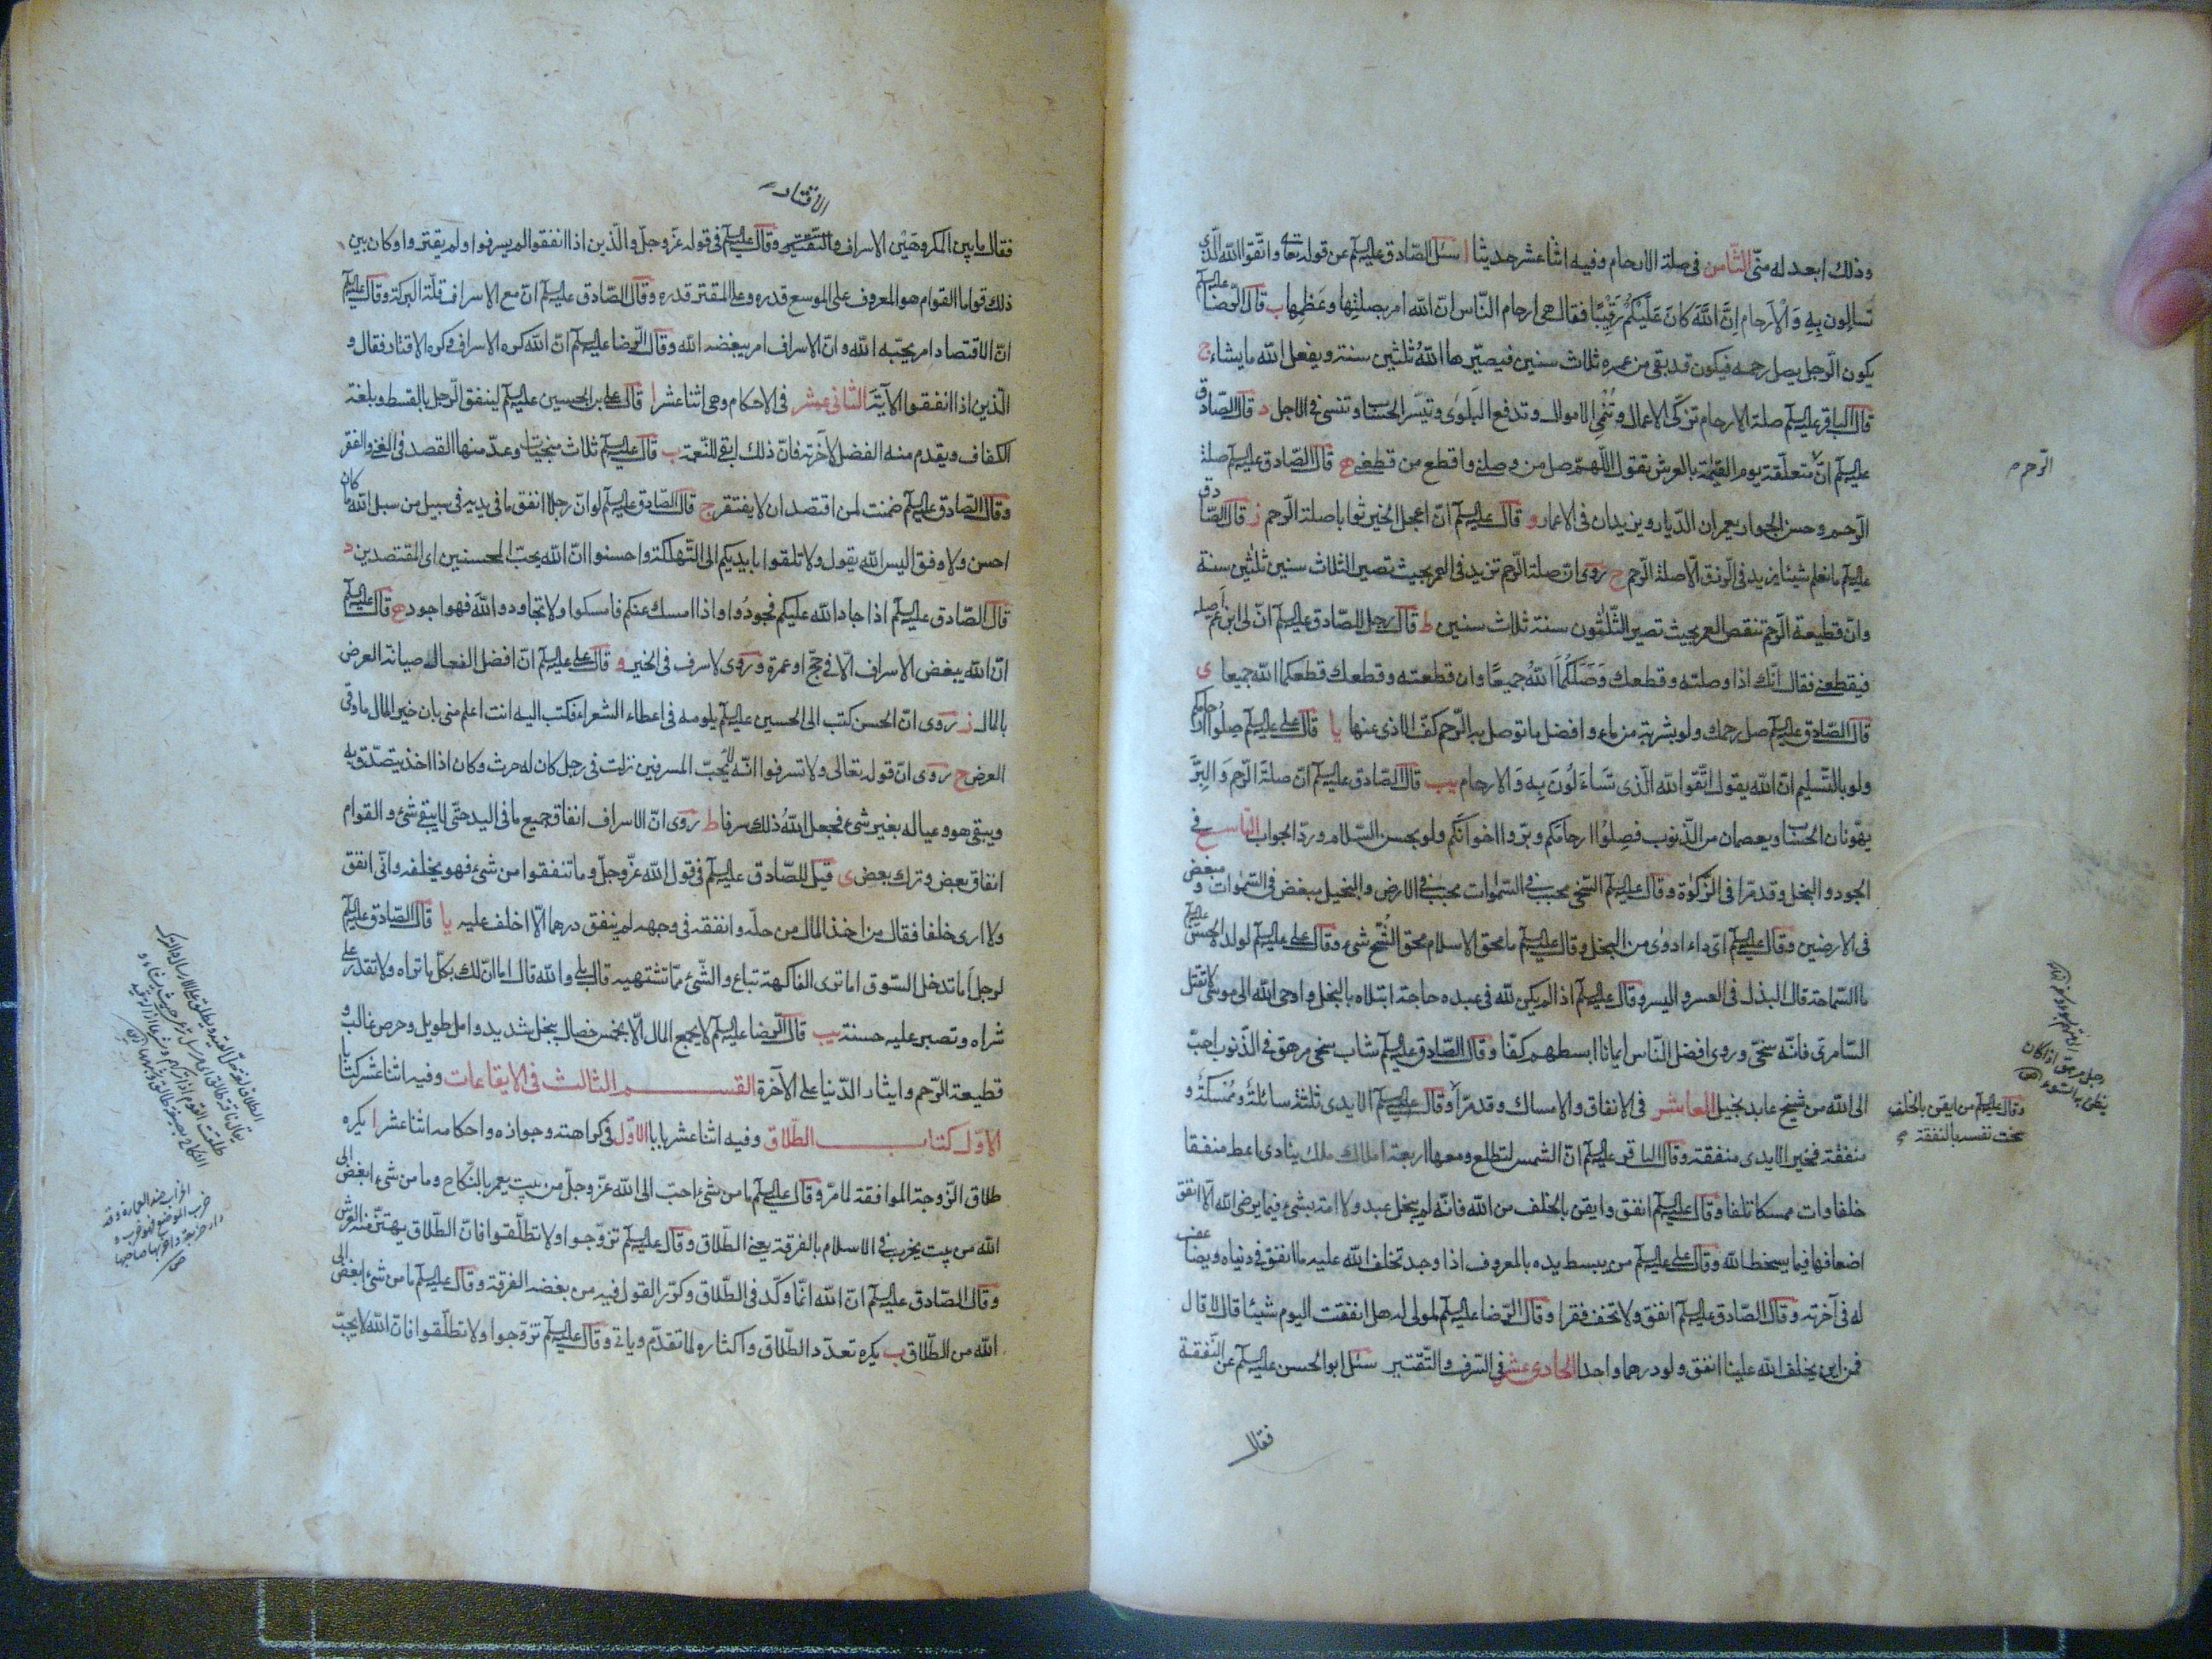 وذلك ابعد له منّي الثّامن في صلة الارحام وفيه اثنا عشر حديثا ا سئل الصّادق عليه السلم عن قوله تعا واتّقوا الله الّذي
تسالون به وَالْاَرحام اِنَّ اللّٰهَ كانَ عَلَيْكُمْ رَقِيْبًا فقال هي ارحام النّاس انّ الله امر بصلتها وعَظمها ب قال الرّضا عليه السلم
يكون الرّجل يصل رحمه فيكون قد بقي من عمره ثلاث سنين فيصيّرها اللّٰهُ ثلثين سنة ويفعل الله ما يشاء ج
قال الباقر عليه السلم صلة الارحام تزكّي الاعمال وتُنْمِي الاموال وتدفع البلوى وتيسّر الحساب وتنسي في الاجل د قال الصّادق
عليه السلم انّ متعلّقة يوم القيٰمة بالعرش تقول اللّهمّ صل من وصلني واقطع من قطعني ه قال الصّادق عليه السلم صلة
الرّحم وحسن الجوار يعمران الدّيار ويزيدان في الاعمار و قال عليه السلم انّ اعجل الخير ثوابا صلة الرّحم ز قال الصّادق
عليه السلم ما نعلم شيئا يزيد في الرّزق الّا صلة الرّحم ح روى انّ صلة الرّحم تزيد في العمر بحيث تصير الثلاث سنين ثلثين سنة
وانّ قطيعة الرّحم تنقص العمر بحيث تصير الثّلٰثون سنة ثلاث سنين ط قال رجل للصّادق عليه السلم انّ لي ابن عم اصله
فيقطعني فقال انّك اذا وصلته وقطعك وَصَلَكُمَا اللّٰهُ جميعًا وان قطعته وقطعك قطعكما الله جميعا ى
قال الصّادق عليه السلم صل رحمك ولو بشربة من ماء وافضل ما توصل به الرّحم كفّ الاذى عنها يا قال علي عليه السلم صِلُوا ارحامكم
ولو بالتّسليم انّ الله يقول اتّقوا الله الّذي تَسَاءَلُونَ بِهِ وَالارحام يب قال الصّادق عليه السلم انّ صلة الرّحم وَ البِرَّ
يهوّنان الحساب ويعصمان من الذّنوب فصِلُوْا ارحامَكم وبرّوا اخوانَكم ولو بحسن السّلام وردّ الجواب التاسع في
الجود والبخل وقد مرّ في الزّكوٰة وقال عليه السلم السّخي محبب في السّمٰوات محبب في الارض والبخيل مبغض في السّمٰوات ومبغض
في الارضين وقال عليه السلم اىّ داء ادوٰى من البخل وقال عليه السلم ما محق الاسلام محق الشُّحّ شيء وقال علي عليه السلم لولده الحسن عليه السلم
ما السّماحة قال البذل في العسر واليسر وقال عليه السلم اذا لم يكن للّه في عبده حاجة ابتلاه بالبخل واوحى الله الى موسى لا تقتل
السّامريّ فانّه سخيّ وروى افضل النّاس ايمانا ابسطهم كفّا وقال الصّادق عليه السلم شاب سخي مرهق في الذّنوب احبّ
الى الله من شيخ عابد بخيل العاشر في الانفاق والامساك وقد مرّ ا وقال عليه السلم الايدى ثلثة سائلة ومُمْسِكة و
منفقة فخير الايدى منفقة وقال الباقر عليه السلم انّ الشمس لتطلع ومعها اربعة املاك ملك ينادى اعط منفقا
خلفا وات ممسكا تلفا وقال عليه السلم انفق وايقن بالخلف من الله فانّه لم يبخل عبد ولا امة بشيء فيما يرضى الله الّا انفق
اضعافها فيما يسخط الله وقال علي عليه السلم من يبسط يده بالمعروف اذا وجد تخلف الله عليه ما انفق في دنياه ويضاعف
له في آخرته وقال الصّادق عليه السلم انفق ولا تخف فقرا وقال الرّضا عليه السلم لمولى له هل انفقت اليوم شيئا قال لا قال
فمن اين يخلف الله علينا انفق ولو درهما واحدا الحادى عشر في السّرف والتّقتير سئل ابو الحسن عليه السلم عن النّفقة
فقال
الرّحم م
وقال عليه السلم من ايقن بالخلف
سخت نفسه بالنفقة
الاقتار
فقال ما بين المكروهَيْن الاسراف والتّقتير وقال عليه السلم في قوله عزّ وجلّ والّذين اذا انفقوا لم يسرفوا ولم يقتروا وكان بين
ذلك قواما القوام هو المعروف على الموسع قدره وعلى المقتر قدره وقال الصّادق عليه السلم انّ مع الاسراف قلّة البركة وقال عليه السلم
انّ الاقتصاد امر يحبّه الله وانّ الاسراف امر يبغضه الله وقال الرّضا عليه السلم انّ الله كره الاسراف وكره الاقتار فقال و
الّذين اذا انفقوا الآيَة الثّانى عشر في الاحكام وهي اثنا عشر ا قال علي بن الحسين عليه السلم لينفق الرّجل بالقسط وبلغة
الكفاف ويقدم منه الفضل لآخرته فانّ ذلك ابقى للنّعمة ب قال عليه السلم ثلاث منجيات وعدّ منها القصد في الغنى والفقر
وقال الصّادق عليه السلم ضمنت لمن اقتصد ان لا يفتقر ج قال الصّادق عليه السلم لو انّ رجلا انفق ما في يديه في سبيل من سبل الله ما كان
احسن ولا وفق اليس الله يقول ولا تلقوا بايديكم الى التّهلكة واحسنوا انّ الله يحبّ المحسنين اى المقتصدين د
قال الصّادق عليه السلم اذا جاد الله عليكم فجودُوا واذا امسك عنكم فامسكوا ولا تجاودوا اللّٰهَ فهو اجود ه قال عليه السلم
انّ الله يبغض الاسراف الّا في حجّ او عمرة وروى لا سرف في الخير و قال علي عليه السلم انّ افضل الفعال صيانة العرض
بالمال ز روى انّ الحسن كتب الى الحسين عليه السلم يلومه في اعطاء الشعراء فكتب اليه انت اعلم منى بان خير المال ما وقى
العرض ح روى انّ قوله تعالى ولا تسرفوا انّه لا يُحبّ المسرفين نزلت في رجل كان له حرث وكان اذا اخذ يتصدّق به
ويبقى هو وعياله بغير شيء فجعل اللّٰهُ ذلك سرفا ط روى انّ الاسراف انفاق جميع ما في اليد حتّى لا يبقى شيء والقوام
انفاق بعض وترك بعض ى قيل للصّادق عليه السلم في قول الله عزّ وجلّ وما تنفقوا من شيء فهو يخلفه وانّى انفق
ولا ارى خلفا فقال من اخذ المال من حلّه وانفقه في وجهه لم ينفق درهما الّا اخلف عليه يا قال الصّادق عليه السلم
لرجل اَما تدخل السّوق اما ترى الفاكهة تباع والشّئ ممّا تشتهيه قال بلى والله قال اما انّ لك بكلّ ما تراه ولا تقدر على
شراه وتصبر عليه حسنة يب قال الرّضا عليه السلم لا يجمع المال الّا بخمس خصال ببخل شديد وامل طويل وحرص غالب و
قطيعة الرّحم وايثار الدّنيا على الآخرة القسم الثالث في الايقاعات وفيه اثنا عشر كتابا
الاوّل كتاب الطّلاق وفيه اثنا عشر بابا الاوّل في كراهته وجوازه واحكامه اثنا عشر ا يكره
طلاق الزّوجة الموافقة لما مرّ وقال عليه السلم ما من شيء احبّ الى الله عزّ وجلّ من بيت يعمر بالنّكاح وما من شيء ابغض الى
الله من بيت يخرب في الاسلام بالفرقة يعنى الطّلاق وقال عليه السلم تزوّجوا ولا تطلّقوا فانّ الطّلاق يهتزّ منه العرش
وقال الصّادق عليه السلم انّ الله انّما وكّد في الطّلاق وكرّر القول فيه من بغضه الفرقة وقال عليه السلم ما من شيء ابغض الى
الله من الطّلاق ب يكره تعدّد الطّلاق واكثاره لما تقدّم وياتى وقال عليه السلم تزوّجوا ولا تطلّقوا فانّ الله لا يحبّ